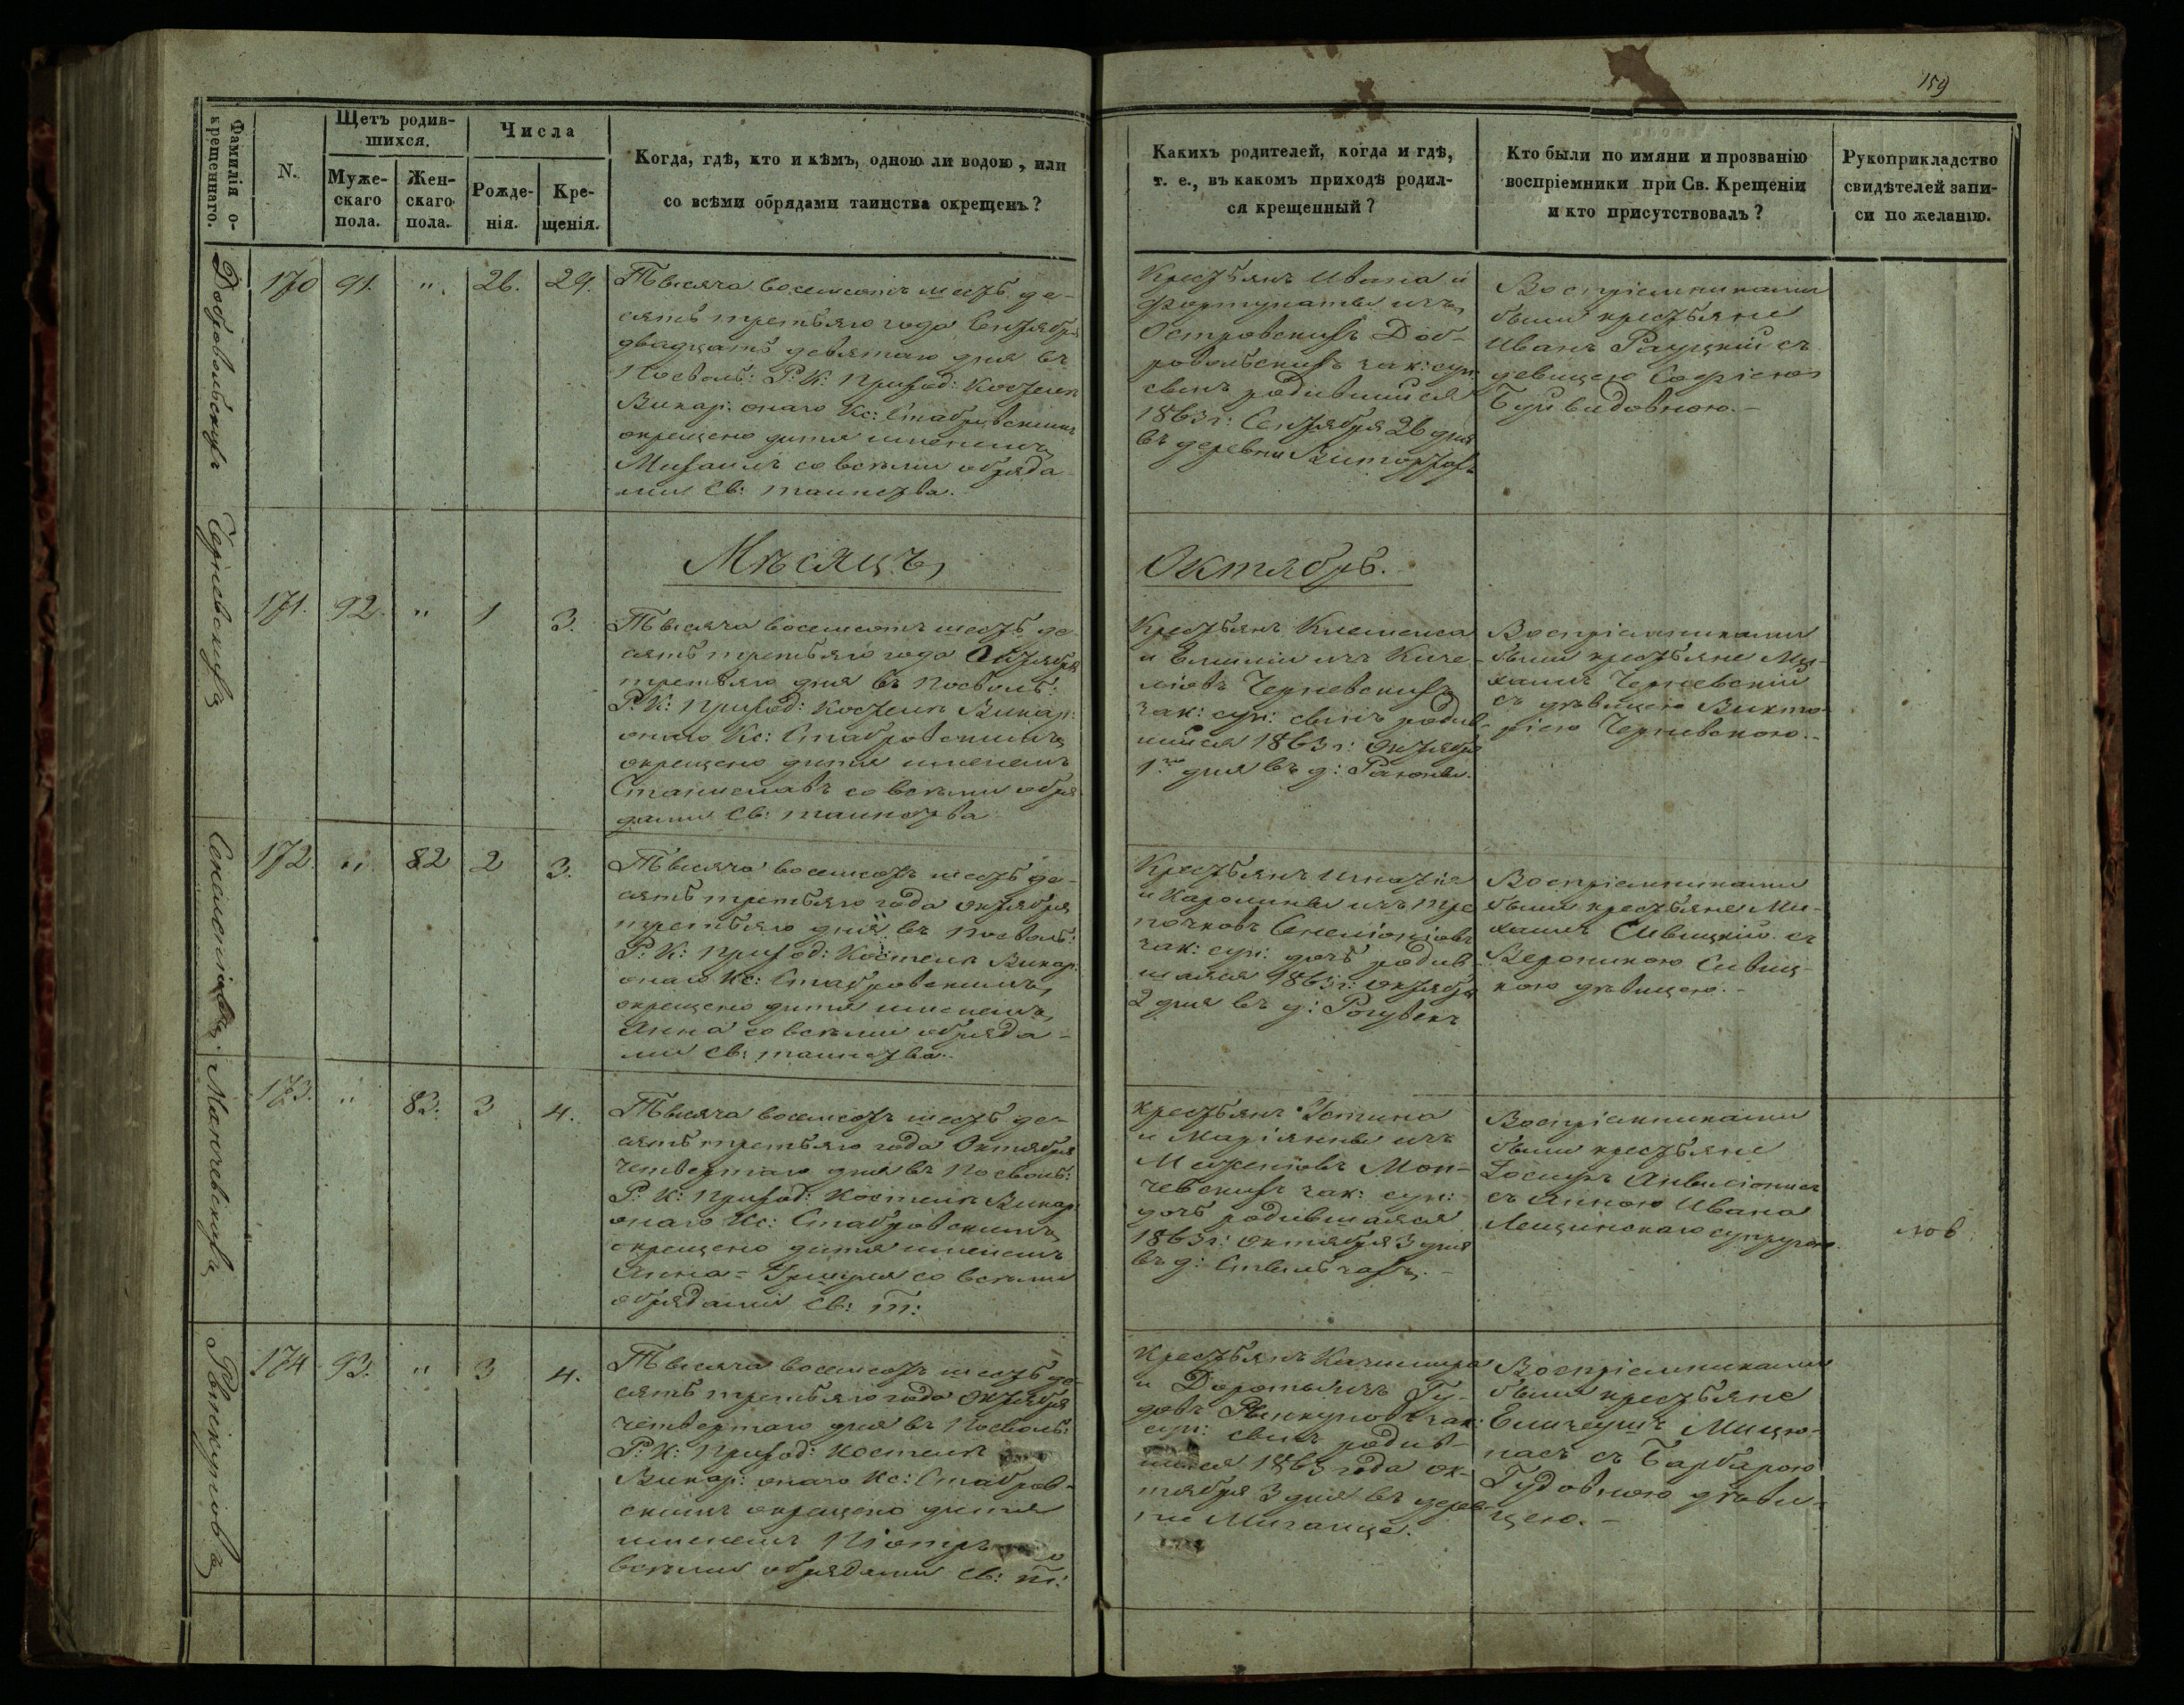 159
Фамилія о-
крещеннаго.
N.
Щетъ родив-
шихся.
Муже-
скаго
пола.
Жен-
скаго
пола.
Числа
Рожде-
нія.
Кре-
щенія.
Когда, гдѣ, кто и кѣмъ, одною ли водою, или
со всѣми обрядами таинства окрещенъ?
Какихъ родителей, когда и гдѣ,
т. е., въ какомъ приходѣ родил-
ся крещенный?
Кто были по имяни и прозванію
воспріемники при Св. Крещеніи
и кто присутствовалъ?
Рукоприкладство
свидѣтелей запи-
си по желанію.
Добровольскихъ
170 91. " 26. 29.
Тысяча восемсотъ шесть де-
сятъ третьяго года Сентября
двадцать девятаго дня въ
Посволь: Р: К: Приход: Костелѣ
Викар: онаго Кс: Стабровскимъ
окрещено дитя именемъ
Михаилъ со всѣми обряда-
ми Св: таинства.
Крестьянъ Ивана и
Фортунаты изъ
Островскихъ Доб-
ровольскихъ зак: суп:
сынъ родившійся
1863 г: Сентября 26 дня
въ деревни
Воспріемниками
были крестьяне
Иванъ Рауцкій съ
девицею Софіею
Буйвидовною.-
Мѣсяцъ
Октябрь.
Черневскихъ
171. 92. " 1 3.
Тысяча восемсотъ шесть де-
сятъ третьяго года Октября
третьяго дня въ Посволь:
Р: К: Приход: Костелѣ Викар:
онаго Кс: Стабровскимъ
окрещено дитя именемъ
Станиславъ со всѣми обря-
дами Св: таинства
Крестьянъ Клеменса
и Емиліи изъ Киче-
ліовъ Черневскихъ
зак: суп: сынъ родив-
шійся 1863 г: Октября
1.го дня въ д: Раюны.
Воспріемниками
были крестьяне Ми-
хаилъ Черневскій
съ дѣвицею Викто-
ріею Черневскою.-
172. " 82 2 3.
Тысяча восемсотъ шесть де-
сятъ третьяго года Октября
третьяго дня въ Посволь:
Р: К: Приход: Костелѣ Викар:
онаго Кс: Стабровскимъ
окрещено дитя именемъ
Анна со всѣми обряда-
ми Св: таинства.
Крестьянъ Игнатія
и Каролины изъ Тре-
почковъ
зак: суп: дочь родив-
шаяся 1863 г: Октября
2 дня въ д:
Воспріемниками
были крестьяне Ми-
хаилъ Сивицкій съ
Вероникою Сивиц-
кою дѣвицею.-
Мончевскихъ
173. " 83. 3 4.
Тысяча восемсотъ шесть де-
сятъ третьяго года Октября
четвертаго дня въ Посволь:
Р: К: Приход: Костелѣ Викар:
онаго Кс: Стабровскимъ
окрещено дитя именемъ
Анна= со всѣми
обрядами Св: т:
Крестьянъ Устина
и Маріянны изъ
Мон-
чевскихъ зак: суп:
дочь родившаяся
1863 г: Октября 3 дня
въ д:
Воспріемниками
были крестьяне
съ Анною Ивана
Лещинскаго супругою.
174 93. " 3 4.
Тысяча восемсотъ шесть де-
сятъ третьяго года Октября
четвертаго дня въ Посволь:
Р: К: Приход: Костелѣ
Викар: онаго Кс: Стабров-
скимъ окрещено дитя
именемъ Піотръ со
всѣми обрядами Св: т:
Крестьянъ Казимира
и Доротыизъ Гу-
довъ зак:
суп: сынъ родив-
шійся 1863 года Ок-
тября 3 дня въ дерев-
не
Воспріемниками
были крестьяне
Мицю-
насъ съ Барбарою
Гудовною дѣви-
цею.-